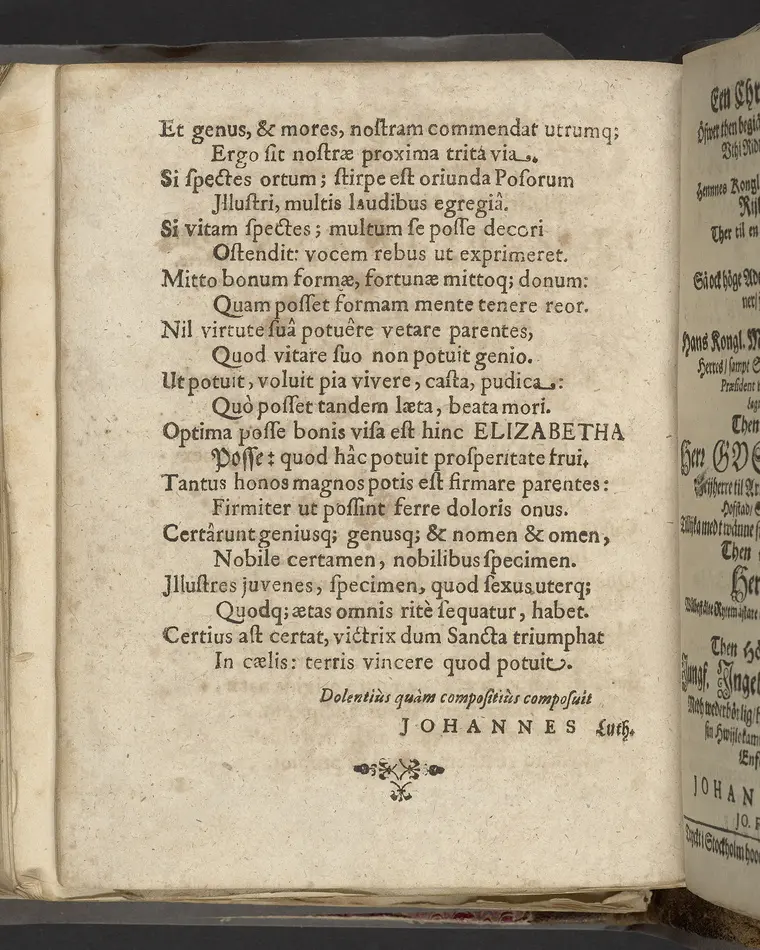 Et genus, & mores, noſtram commendat utrumq;
Ergo ſit noſtræ proxima trita via.
Si ſpectes ortum; ſtirpe eſt oriunda Poſorum
Jlluſtri, multis laudibus egregiâ.
Si vitam ſpectes; multum ſe poſſe decori
Oſtendit: vocem rebus ut exprimeret.
Mitto bonum formæ, fortunæ mittoq; donum:
Quam poſſet formam mente tenere reor.
Nil virtute ſuâ potuêre vetare parentes,
Quod vitare ſuo non potuit genio.
Ut potuit, voluit pia vivere, caſta, pudica:
Quò poſſet tandem læta, beata mori.
Optima poſſe bonis viſa eſt hinc ELIZABETHA
Poſſe: quod hâc potuit proſperitate frui.
Tantus honos magnos potis eſt firmare parentes:
Firmiter ut poſſint ferre doloris onus.
Certârunt geniusq; genusq; & nomen & omen,
Nobile certamen, nobilibus ſpecimen.
Jlluſtres juvenes, ſpecimen, quod ſexus uterq;
Quodq; ætas omnis ritè ſequatur, habet.
Certius aſt certat, victrix dum Sancta triumphat
In cælis: terris vincere quod potuit.
Dolentiùs quàm compoſitiùs compoſuit
JOHANNES Luth.
Een Chr
Öfwer then
Kongl
Ther til en
Så ock höge
Hans Kongl. M
Herres / ſampt
Præſident
Then
Herr GVS
Then
Her
Then Hö
Jungf. Ingel
JOHAN
JO.
Tryckt i Stockholm hoos